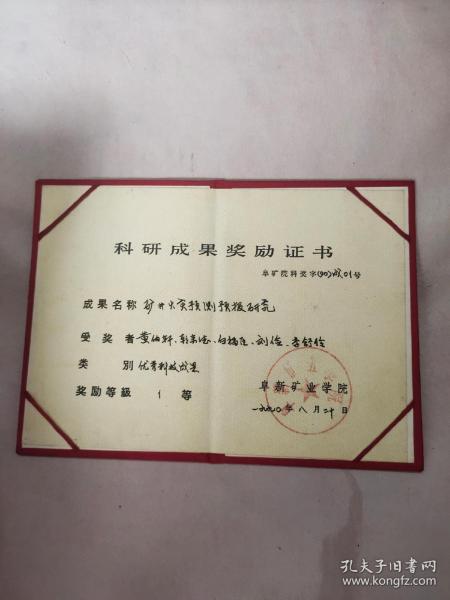 科研成果奖励证书
阜矿院科奖字(90)成01号
成果名称 矿井火灾预测预报研究
受奖者 黄伯轩、刘俭、李舒伶
类别 优秀科技成果
奖励等级 1等
阜新矿业学院
一九九〇年八月二十日
孔夫子旧书网
www.kongfz.com